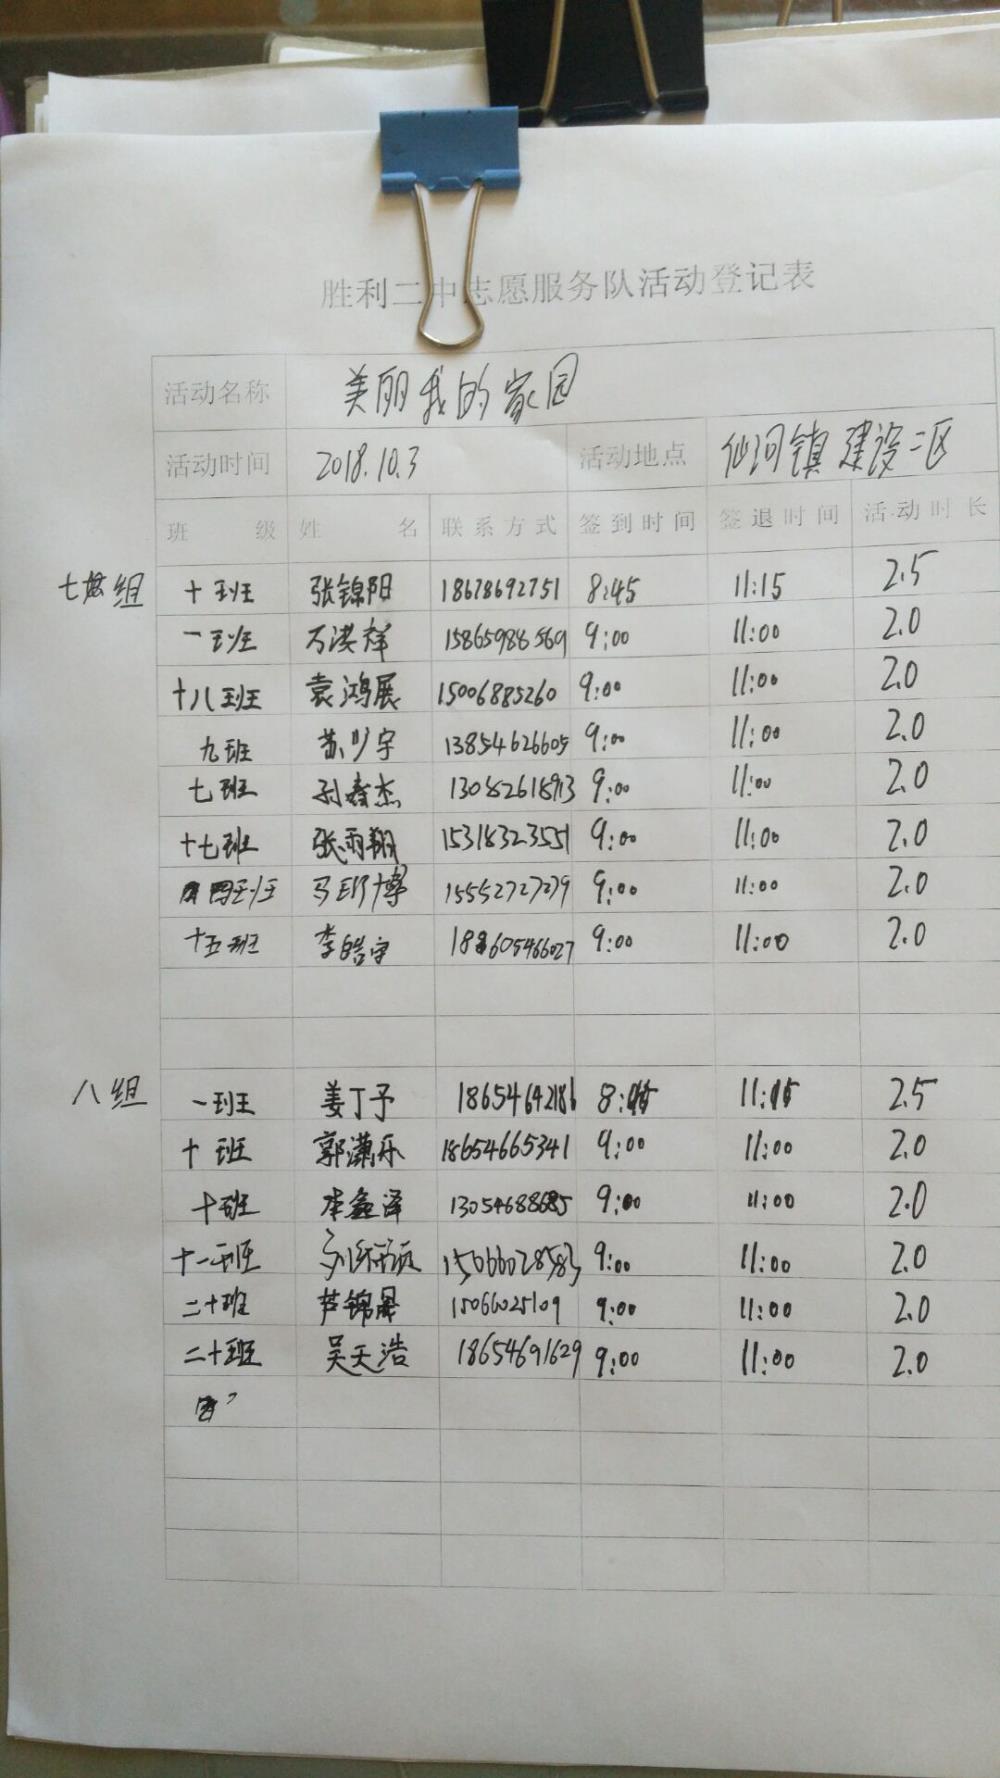 胜利二中志愿服务队活动登记表
活动名称 美丽我的家园
活动时间 2018.10.3 活动地点 仙河镇 建设二区
班级 姓名 联系方式 签到时间 签退时间 活动时长
七组 十班 张锦阳 18678692751 8:45 11:15 2.5
一班 万洪祥 15865988569 9:00 11:00 2.0
十八班 袁鸿展 15006885260 9:00 11:00 2.0
九班 苏 宇 13854626605 9:00 11:00 2.0
七班 孙春杰 13082618913 9:00 11:00 2.0
十七班 张雨翔 15318323551 9:00 11:00 2.0
四班 马 博 15552727279 9:00 11:00 2.0
十五班 李皓宇 9:00 11:00 2.0
八组 一班 姜丁予 18654642186 8:45 11:15 2.5
十班 郭潇乐 18654665341 9:00 11:00 2.0
十班 李鑫泽 13054688685 9:00 11:00 2.0
十一班 15066028583 9:00 11:00 2.0
二十班 芦锦 15066025109 9:00 11:00 2.0
二十班 吴天浩 18654691629 9:00 11:00 2.0